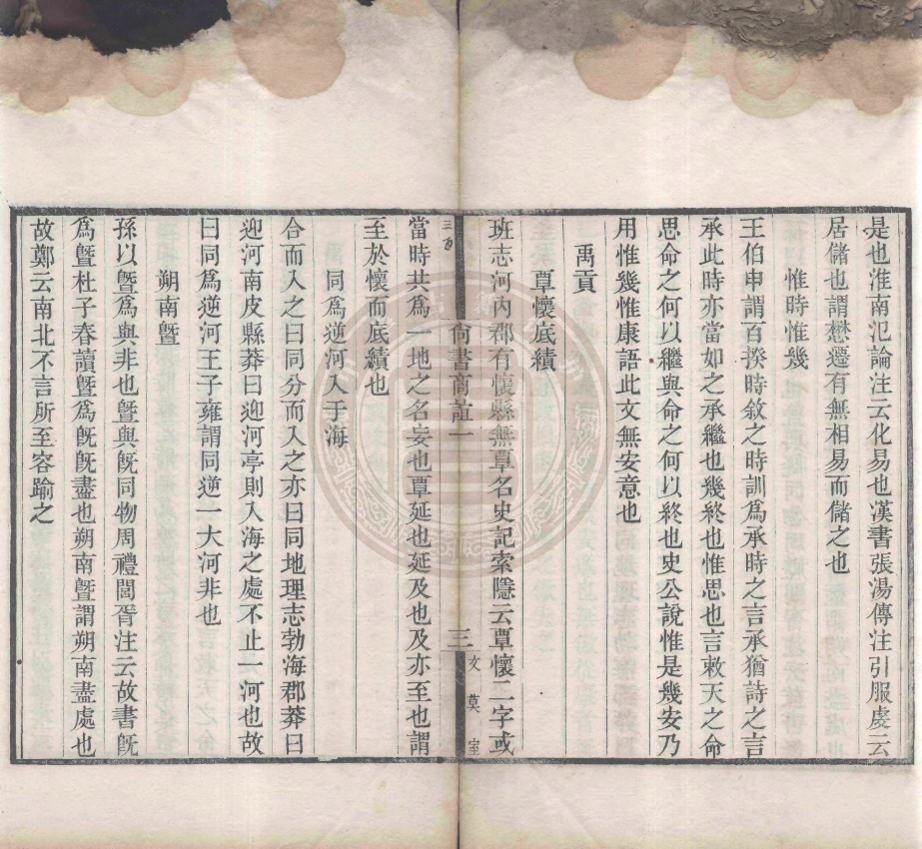 是也淮南氾論注云化易也漢書張湯傳注引服虔云
居儲也謂懋遷有無相易而儲之也
惟時惟幾
王伯申謂百揆時敘之時訓爲承時之言承猶詩之言
承此時亦當如之承繼也幾終也惟思也言敕天之命
思命之何以繼與命之何以終也史公說惟是幾安乃
用惟幾惟康語此文無安意也
禹貢
覃懷底績
班志河內郡有懷縣無覃名史記索隱云覃懷二字或
尙書商誼一
三
文莫室
當時共爲一地之名妄也覃延也延及也及亦至也謂
至於懷而底績也
同爲逆河入于海
合而入之曰同分而入之亦曰同地理志勃海郡莽曰
迎河南皮縣莽曰迎河亭則入海之處不止一河也故
曰同爲逆河王子雍謂同逆一大河非也
朔南曁
孫以曁爲與非也曁與旣同物周禮閭胥注云故書旣
爲曁杜子春讀曁爲旣旣盡也朔南曁謂朔南盡處也
故鄭云南北不言所至容踰之